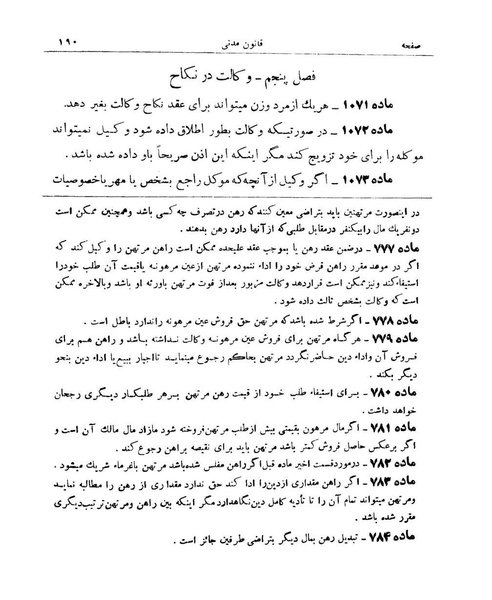 صفحه قانون مدنی ۱۹۰
فصل پنجم - وکالت در نکاح
ماده ۱۰۷۱ - هریك ازمرد وزن میتواند برای عقد نکاح وکالت بغیر دهد.
ماده ۱۰۷۲ - در صورتیکه وکالت بطور اطلاق داده شود وکیل نمیتواند
موکله را برای خود تزویج کند مگر اینکه این اذن صریحاً باو داده شده باشد .
ماده ۱۰۷۳ - اگر وکیل از آنچه که موکل راجع بشخص یا مهر یاخصوصیات
در اینصورت مرتهنین باید بتراضی معین کنند که رهن درتصرف چه کسی باشد وهمچنین ممکن است
دونفریك مال رابیکنفر درمقابل طلبی که از آنها دارد رهن بدهند .
ماده ۷۷۷ - درضمن عقد رهن یا بموجب عقد علیحده ممکن است راهن مرتهن را وکیل کند که
اگر در موعد مقرر راهن قرض خود را اداء ننموده مرتهن ازعین مرهونه یاقیمت آن طلب خودرا
استیفاء کند ونیزممکن است قراردهد وکالت مزبور بعداز فوت مرتهن باورثه او باشد وبالاخره ممکن
است که وکالت بشخص ثالث داده شود .
ماده ۷۷۸ - اگرشرط شده باشد که مرتهن حق فروش عین مرهونه راندارد باطل است .
ماده ۷۷۹ - هرگاه مرتهن برای فروش عین مرهونه وکالت نداشته باشد و راهن هم برای
فروش آن واداء دین حاضرنگردد مرتهن بحاکم رجوع مینماید تااجبار ببیع یا اداء دین بنحو
دیگر بکند .
ماده ۷۸۰ - برای استیفاء طلب خود از قیمت رهن مرتهن برهر طلبکار دیگری رجحان
خواهد داشت .
ماده ۷۸۱ - اگرمال مرهون بقیمتی بیش ازطلب مرتهن فروخته شود مازاد مال مالك آن است و
اگر برعکس حاصل فروش کمتر باشد مرتهن باید برای نقیصه براهن رجوع کند .
ماده ۷۸۲ - درموردقسمت اخیر ماده قبل اگرراهن مفلس شده باشد مرتهن باغرماء شریك میشود .
ماده ۷۸۳ - اگر راهن مقداری ازدین را ادا کند حق ندارد مقداری از رهن را مطالبه نماید
ومرتهن میتواند تمام آن را تا تأدیه کامل دین نگاهدارد مگر اینکه بین راهن ومرتهن ترتیب دیگری
مقرر شده باشد .
ماده ۷۸۴ - تبدیل رهن بمال دیگر بتراضی طرفین جائز است .